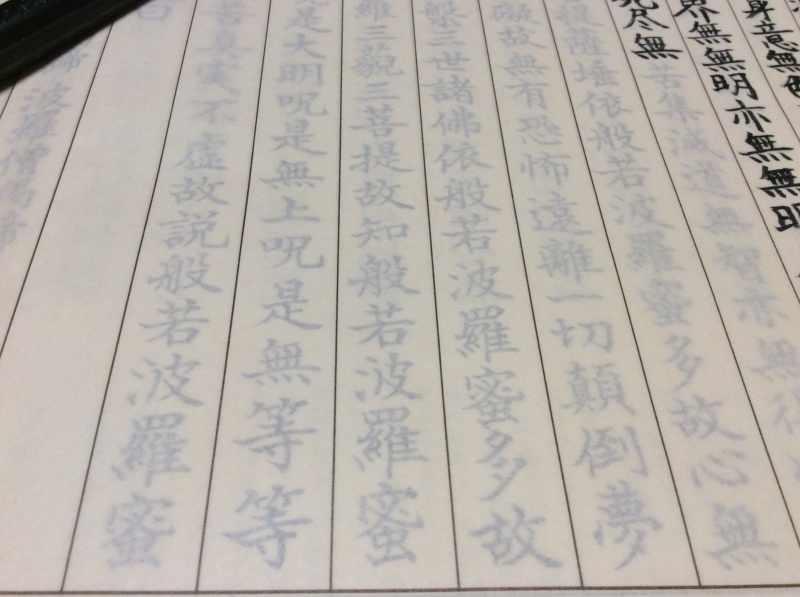 身意無
界無無明亦無無明
死尽無苦集滅道無智亦無得
提薩埵依般若波羅蜜多故心無
礙故無有恐怖遠離一切顛倒夢
槃三世諸佛依般若波羅蜜多故
羅三藐三菩提故知般若波羅蜜
是大明呪是無上呪是無等等
苦真実不虚故説般若波羅蜜
曰
諦波羅僧羯諦